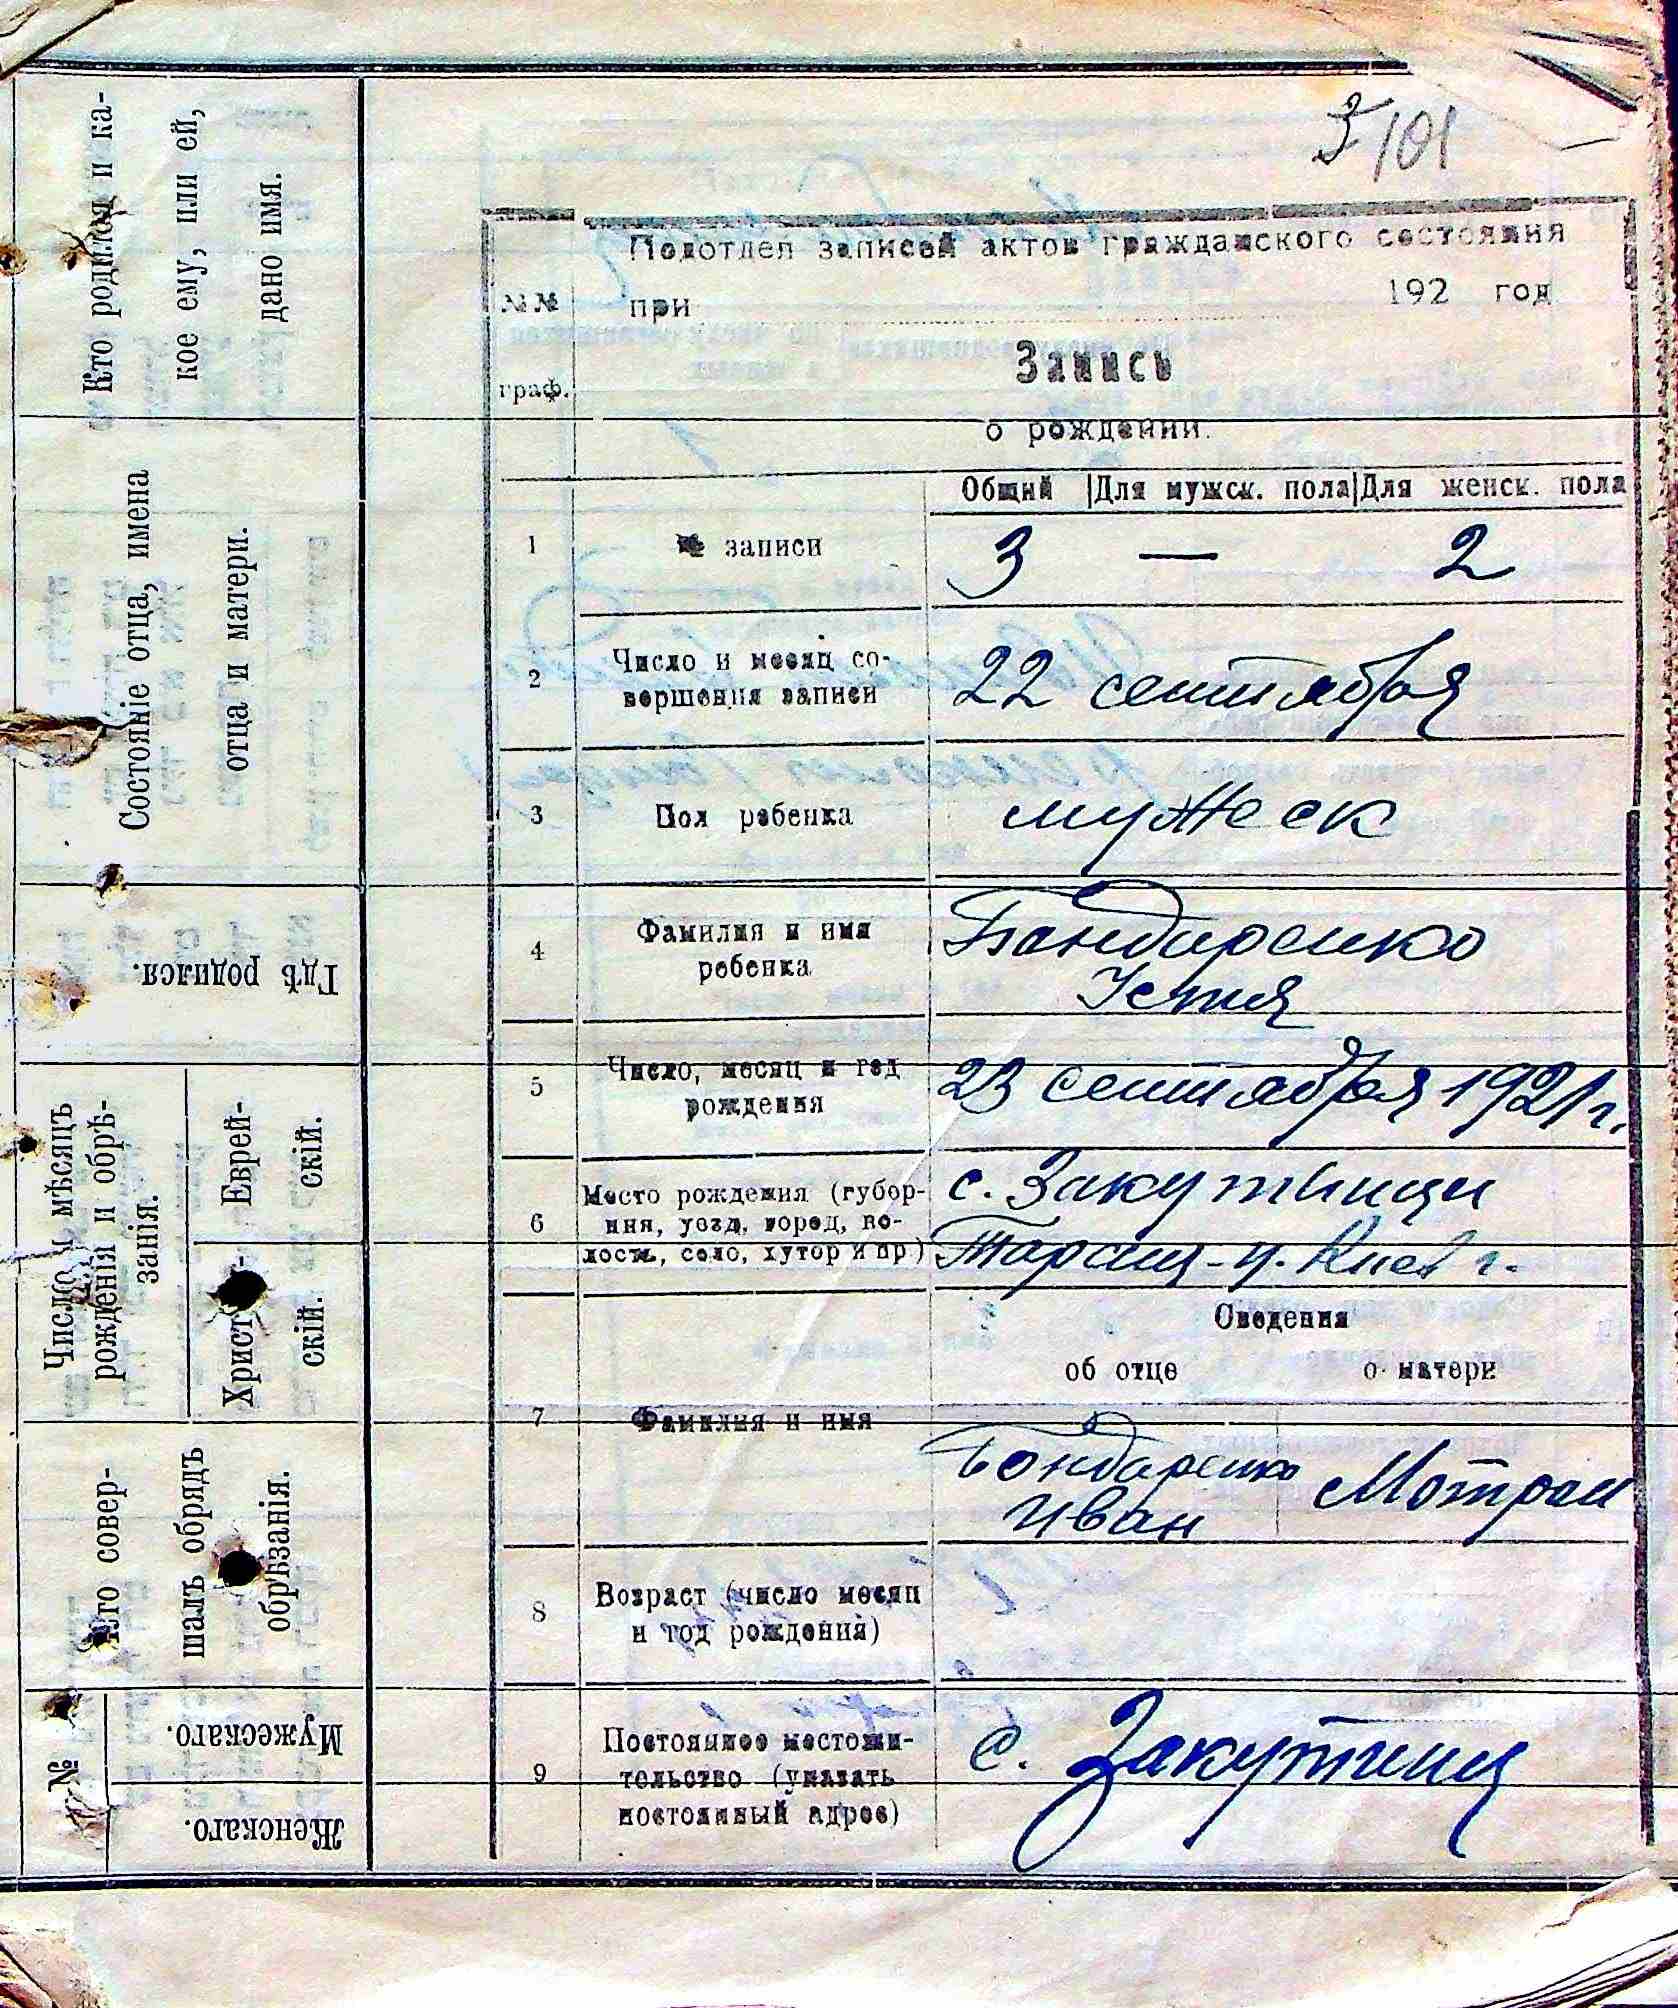 3 101
Кто родился и ка-
кое ему, или ей,
дано имя.
Состояніе отца, имена
отца и матери.
Гдѣ родился.
Число и мѣсяцъ
рожденія и обрѣ-
занія.
Еврей-
скій.
Христ-
скій.
Кто совер-
шалъ обрядъ
обрѣзанія.
№
Мужескаго.
Женскаго.
№№
граф.
Подотдел записей актов гражданского состояния
при 192 год
Запись
о рождении.
Общий Для мужск. пола Для женск. пола
1 № записи 3 — 2
2 Число и месяц со-
вершения записи
22 сентября
3 Пол ребенка мужеск
4 Фамилия и имя
ребенка
Бондаренко
Устя
5 Число, месяц и год
рождения
23 сентября 1921 г.
6 Место рождения (губер-
ния, уезд, город, во-
лость, село, хутор и пр)
с. Закутинци
Таращ-у. Киев г.
Сведения
об отце о матери
7 Фамилия и имя
Бондаренко
Иван
Мотрон
8 Возраст (число месяц
и год рождения)
9 Постоянное местожи-
тельство (указать
постоянный адрес)
с. Закутинц